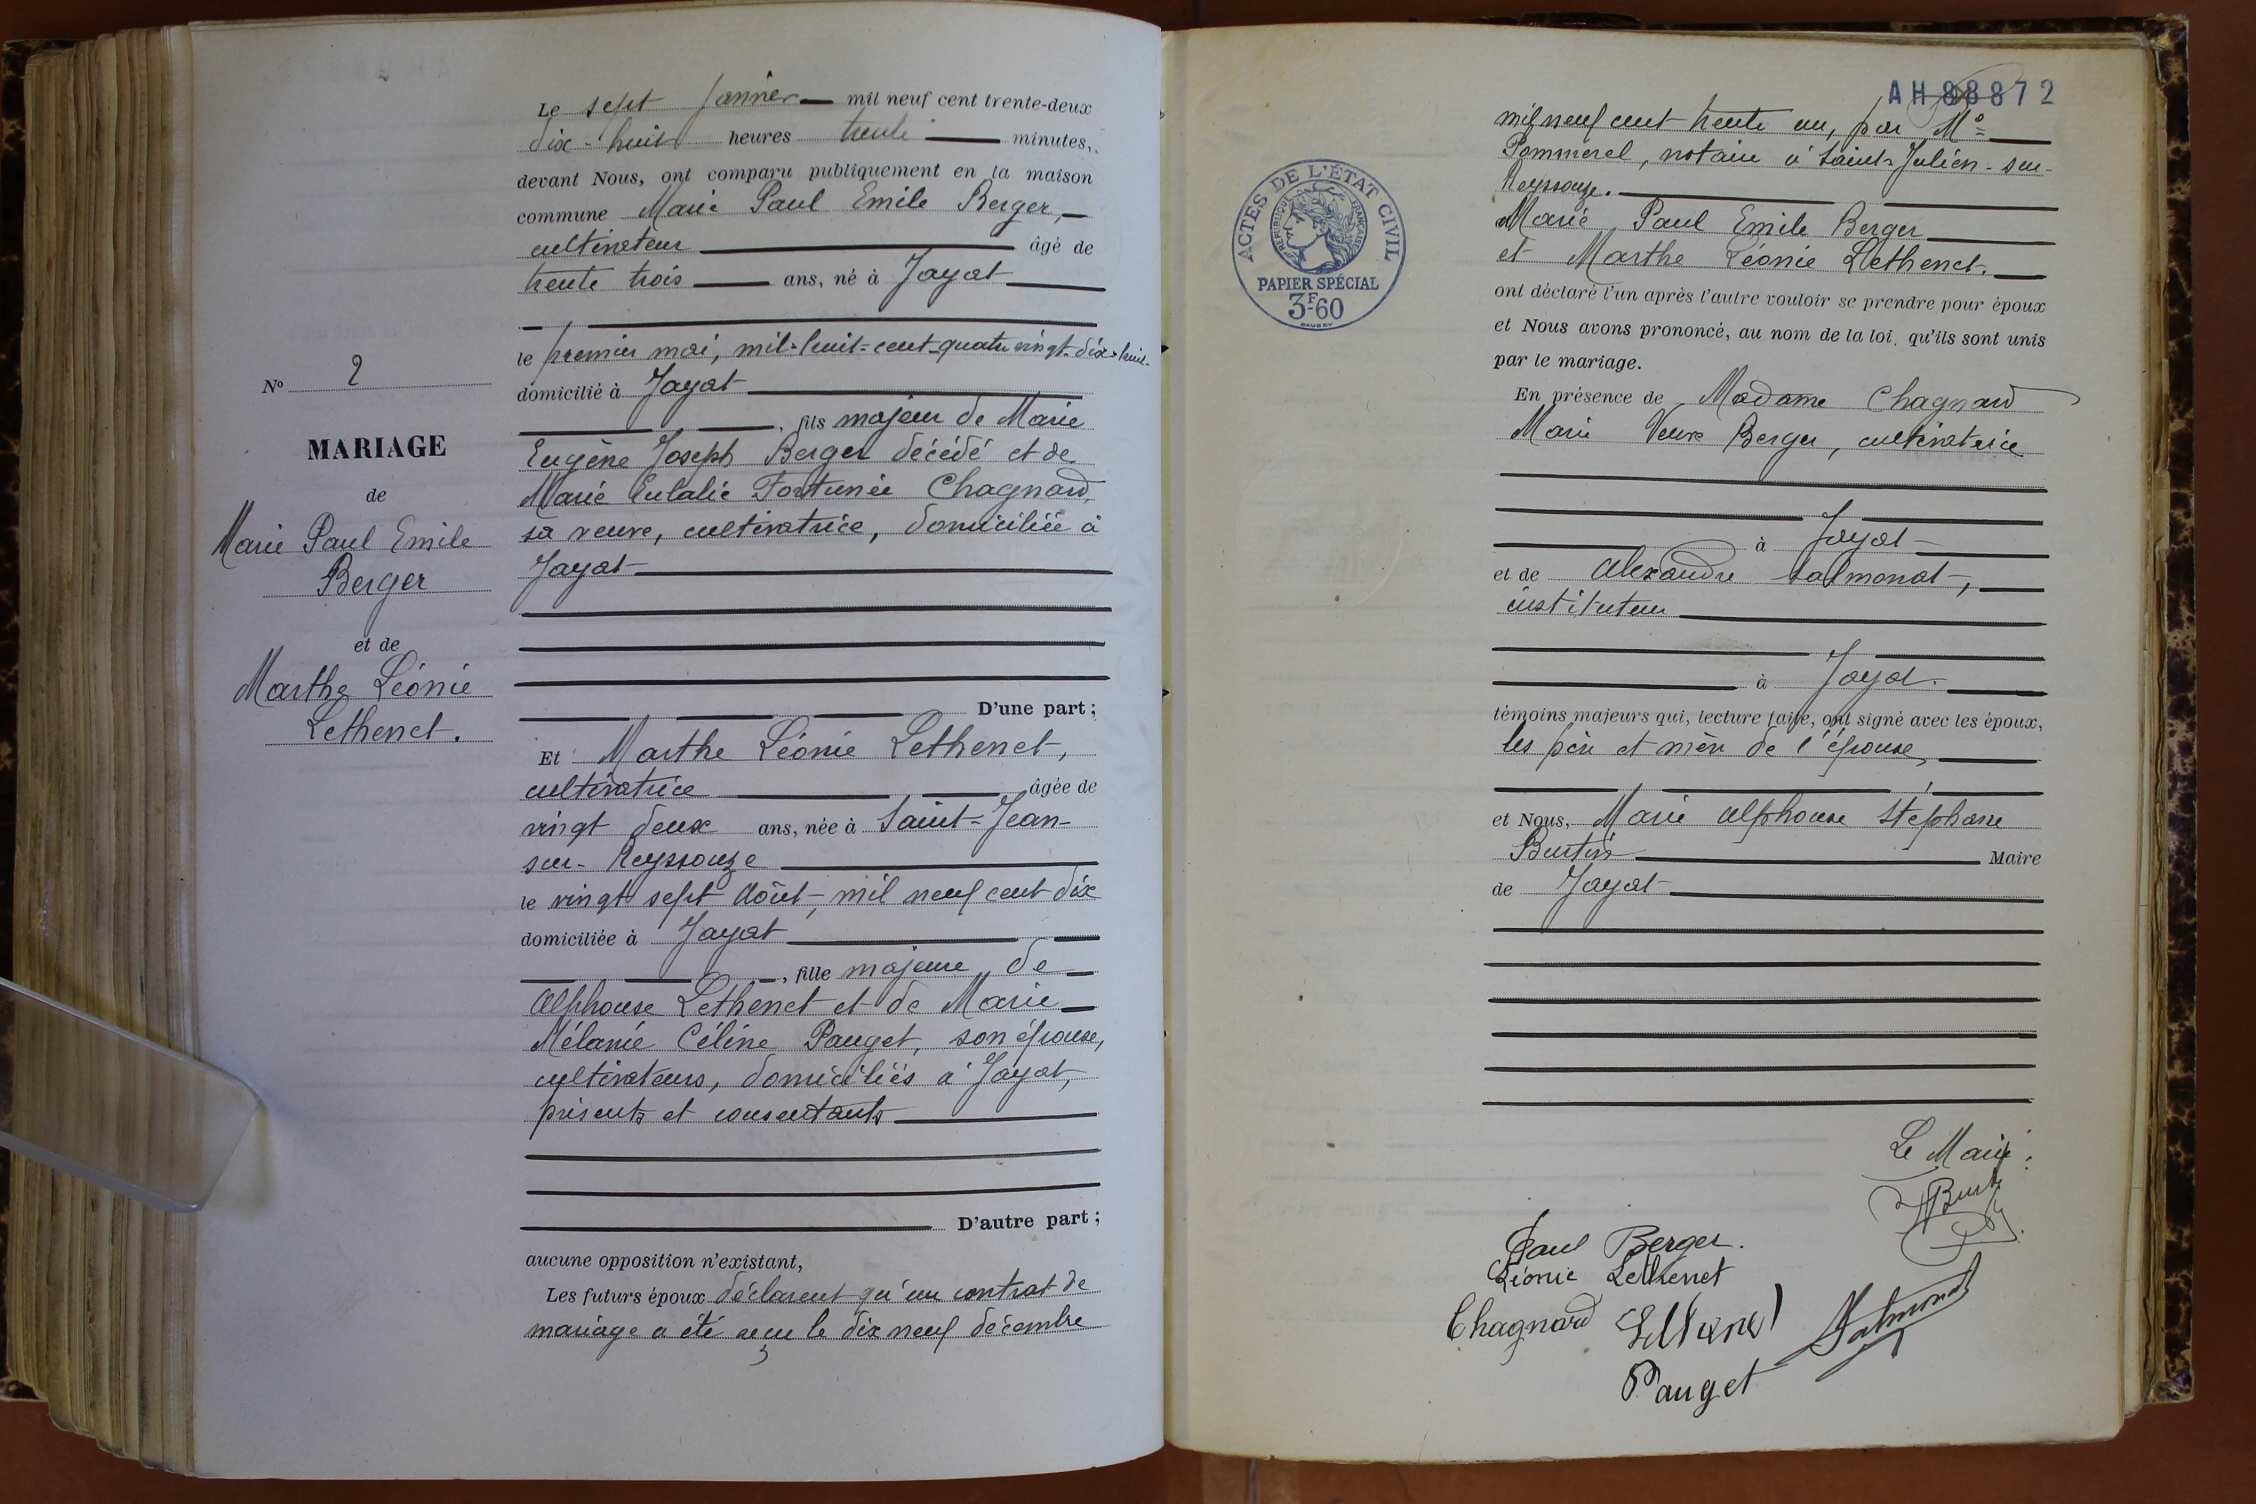 N° 2
MARIAGE
de
Marie Paul Emile
Berger
et de
Marthe Léonie
Lethenet.
Le sept Janvier mil neuf cent trente-deux
dix-huit heures trente minutes,
devant Nous, ont comparu publiquement en la maison
commune Marie Paul Emile Berger,
cultivateur âgé de
trente trois ans, né à Jayat
le premier mai, mil-huit-cent-quatre vingt-dix-huit
domicilié à Jayat
, fils majeur de Marie
Eugène Joseph Berger décédé et de
Marie Eulalie Fortunée Chagnard,
sa veuve, cultivatrice, domiciliée à
Jayat
D'une part ;
Et Marthe Léonie Lethenet,
cultivatrice âgée de
vingt deux ans, née à Saint-Jean-
sur-Reyssouze
le vingt sept Août, mil neuf cent dix
domiciliée à Jayat
, fille majeure de
Alphonse Lethenet et de Marie
Mélanie Céline Pauget, son épouse,
cultivateurs, domiciliés à Jayat,
présents et consentants
D'autre part ;
aucune opposition n'existant,
Les futurs époux déclarent qu'un contrat de
mariage a été reçu le dix neuf décembre
AH 88872
ACTES DE L'ÉTAT CIVIL
RÉPUBLIQUE FRANÇAISE
PAPIER SPÉCIAL
3F60
mil neuf cent trente un, par Me
Pommerel, notaire à Saint-Julien-sur-
Reyssouze.
Marie Paul Emile Berger
et Marthe Léonie Lethenet.
ont déclaré l'un après l'autre vouloir se prendre pour époux
et Nous avons prononcé, au nom de la loi, qu'ils sont unis
par le mariage.
En présence de Madame Chagnard
Marie Veuve Berger, cultivatrice
à Jayat
et de Alexandre Salmonat,
instituteur
à Jayat.
témoins majeurs qui, lecture faite, ont signé avec les époux,
les père et mère de l'épouse,
et Nous, Marie Alphonse Stéphane
Burtin Maire
de Jayat
Le Maire :
Paul Berger.
Léonie Lethenet
Chagnard Lethenet Salmonat
Pauget